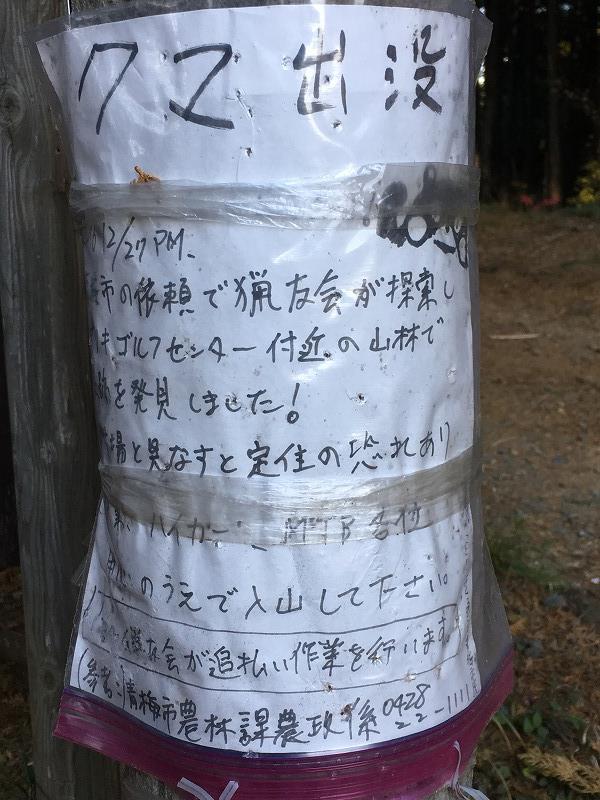 クマ出没
12/27 PM.
市の依頼で猟友会が探索し
ゴルフセンター付近の山林で
を発見しました!
場と見なすと定住の恐れあり
ハイカー MTB各位
のうえで入山して下さい。
友会が追払い作業を行います
(参考)青梅市農林課農政係 0428
22-1111